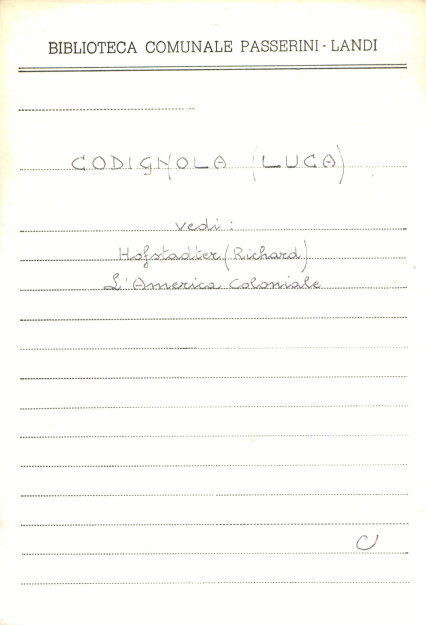 BIBLIOTECA COMUNALE PASSERINI - LANDI
CODIGNOLA (LUCA)
vedi:
Hofstadter (Richard)
L'America Coloniale